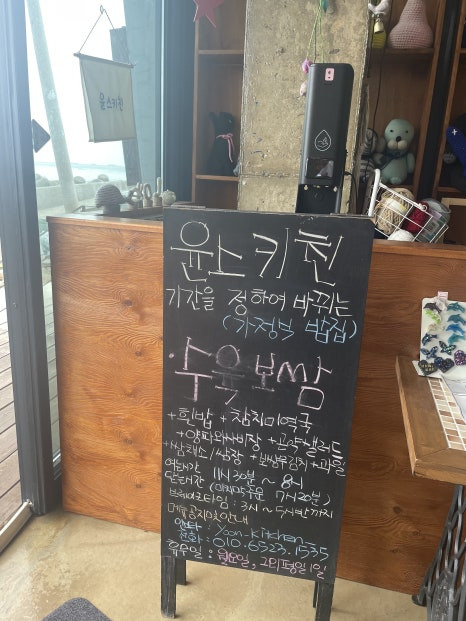 윤스키친
윤스키친
기간을 정하여 바뀌는
(가정식 밥집)
수육보쌈
+흰밥 +참치미역국
+양파와사비장 +곤약샐러드
+쌈채소/쌈장 +보쌈무김치 +과일
11시 30분 ~ 8시
(마지막주문 7시 20분)
브레이크타임 : 3시 ~ 5시반까지
메뉴공지및안내
인스타 : yoon-kitchen
전화 : 010.6323.1535
휴무일 : 월요일, 그외평일1일